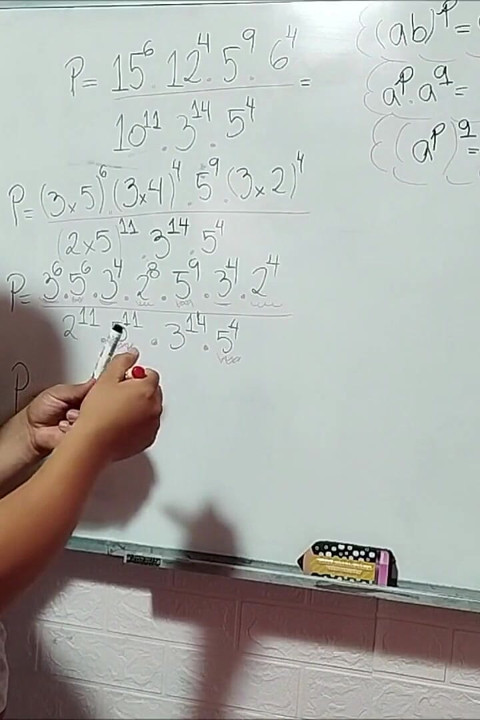 P = 15⁶ . 12⁴ . 5⁹ . 6⁴ =
10¹¹ . 3¹⁴ . 5⁴
P = (3×5)⁶ . (3×4)⁴ . 5⁹ . (3×2)⁴
(2×5)¹¹ . 3¹⁴ . 5⁴
P = 3⁶ . 5⁶ . 3⁴ . 2⁸ . 5⁹ . 3⁴ . 2⁴
2¹¹ . 5¹¹ . 3¹⁴ . 5⁴
P
(ab)ᵖ =
aᵖ . a^q =
(aᵖ)^q =